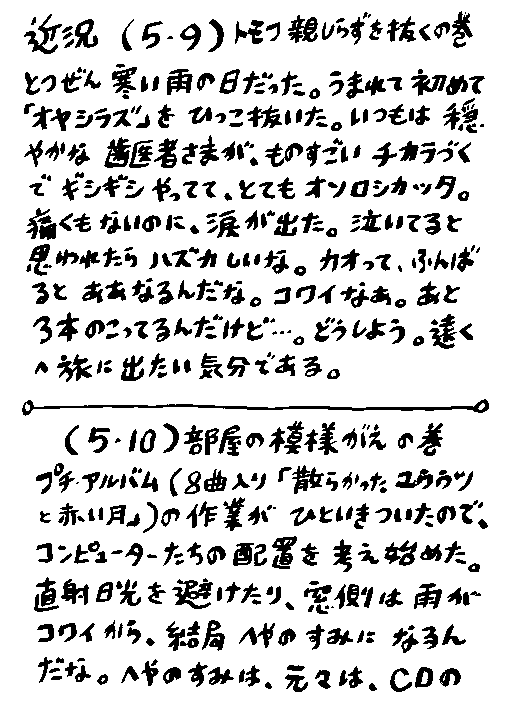 近況 (5・9) トモコ親しらずを抜くの巻
とつぜん寒い雨の日だった。うまれて初めて
「オヤシラズ」をひっこ抜いた。いつもは穏
やかな歯医者さまが、ものすごいチカラづく
でギシギシやってて、とてもオソロシカッタ。
痛くもないのに、涙が出た。泣いてると
思われたらハズカしいな。カオって、ふんば
るとああなるんだな。コワイなあ。あと
3本のこってるんだけど…。どうしよう。遠く
へ旅に出たい気分である。
(5・10) 部屋の模様がえの巻
プチ・アルバム(8曲入り「散らかったユウウツ
と赤い月」)の作業がひといきついたので、
コンピューターたちの配置を考え始めた。
直射日光を避けたり、窓側は雨が
コワイから、結局へやのすみになるん
だな。へやのすみは、元々は、CDの